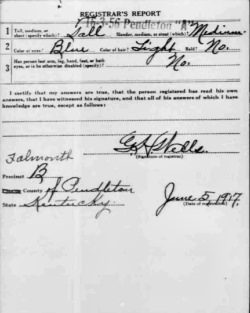 REGISTRAR'S REPORT
16-3-56 Pendleton "A"
1 Tall, medium, or short (specify which)? Tall Slender, medium, or stout (which)? Medium
2 Color of eyes? Blue Color of hair? Light Bald? No.
3 Has person lost arm, leg, hand, foot, or both eyes, or is he otherwise disabled (specify)? No.
I certify that my answers are true, that the person registered has read his own answers, that I have witnessed his signature, and that all of his answers of which I have knowledge are true, except as follows:
(Signature of registrar)
Falmouth
Precinct B
County of Pendleton
State Kentucky
June 5, 1917.
(Date of registration)